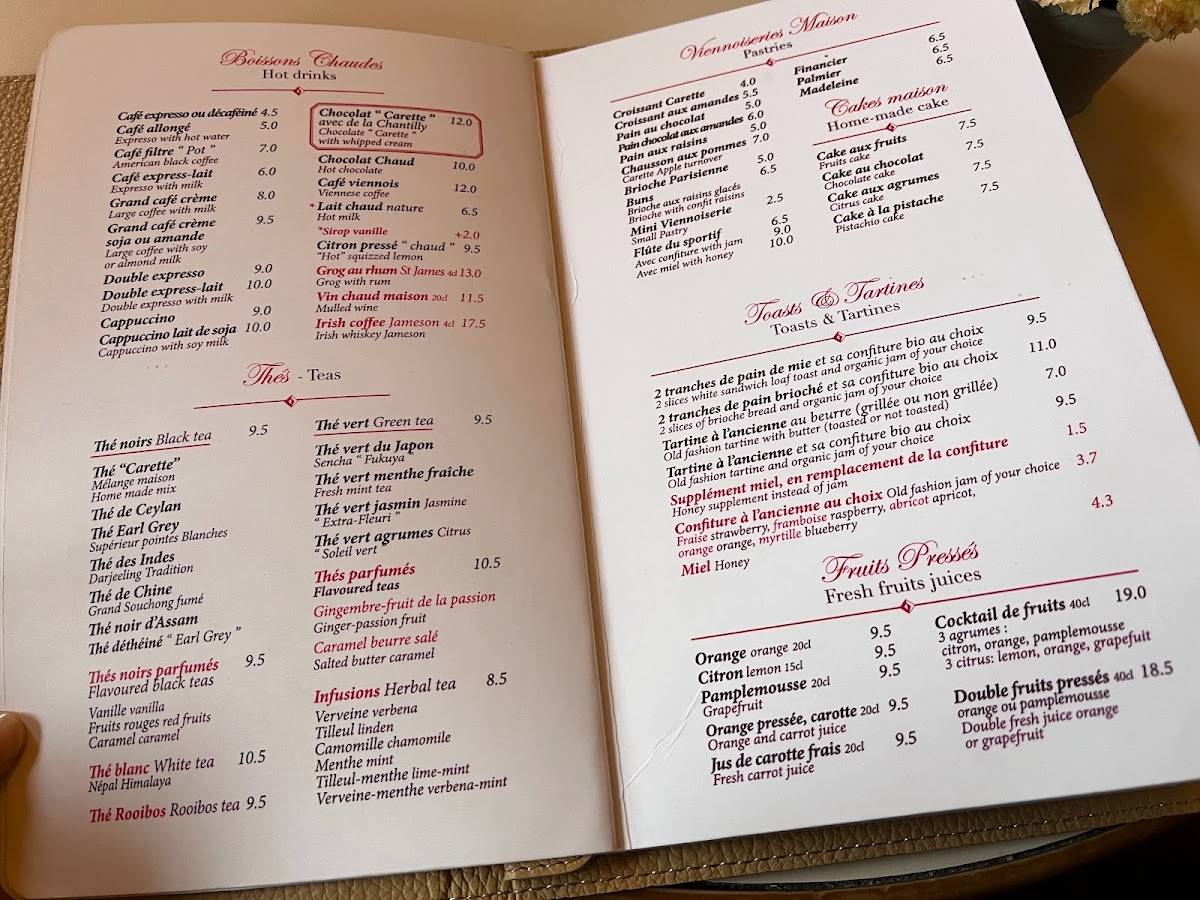 Boissons Chaudes
Hot drinks
Café expresso ou décaféiné 4.5
Café allongé 5.0
Expresso with hot water
Café filtre “ Pot ” 7.0
American black coffee
Café express-lait 6.0
Expresso with milk
Grand café crème 8.0
Large coffee with milk
Grand café crème 9.5
soja ou amande
Large coffee with soy
or almond milk
Double expresso 9.0
Double express-lait 10.0
Double expresso with milk
Cappuccino 9.0
Cappuccino lait de soja 10.0
Cappuccino with soy milk
Chocolat “ Carette ” 12.0
avec de la Chantilly
Chocolate “ Carette ”
with whipped cream
Chocolat Chaud 10.0
Hot chocolate
Café viennois 12.0
Viennese coffee
*Lait chaud nature 6.5
Hot milk
*Sirop vanille +2.0
Citron pressé “ chaud ” 9.5
“Hot” squizzed lemon
Grog au rhum St James 4cl 13.0
Grog with rum
Vin chaud maison 20cl 11.5
Mulled wine
Irish coffee Jameson 4cl 17.5
Irish whiskey Jameson
Thés - Teas
Thé noirs Black tea 9.5
Thé “Carette”
Mélange maison
Home made mix
Thé de Ceylan
Thé Earl Grey
Supérieur pointes Blanches
Thé des Indes
Darjeeling Tradition
Thé de Chine
Grand Souchong fumé
Thé noir d’Assam
Thé déthéiné “ Earl Grey ”
Thés noirs parfumés 9.5
Flavoured black teas
Vanille vanilla
Fruits rouges red fruits
Caramel caramel
Thé blanc White tea 10.5
Népal Himalaya
Thé Rooibos Rooibos tea 9.5
Thé vert Green tea 9.5
Thé vert du Japon
Sencha “ Fukuya
Thé vert menthe fraîche
Fresh mint tea
Thé vert jasmin Jasmine
“ Extra-Fleuri ”
Thé vert agrumes Citrus
“ Soleil vert
Thés parfumés 10.5
Flavoured teas
Gingembre-fruit de la passion
Ginger-passion fruit
Caramel beurre salé
Salted butter caramel
Infusions Herbal tea 8.5
Verveine verbena
Tilleul linden
Camomille chamomile
Menthe mint
Tilleul-menthe lime-mint
Verveine-menthe verbena-mint
Viennoiseries Maison
Pastries
Croissant Carette 4.0
Croissant aux amandes 5.5
Pain au chocolat 5.0
Pain chocolat aux amandes 6.0
Pain aux raisins 5.0
Chausson aux pommes 7.0
Carette Apple turnover
Brioche Parisienne 5.0
Buns 6.5
Brioche aux raisins glacés
Brioche with confit raisins
Mini Viennoiserie 2.5
Small Pastry
Flûte du sportif 6.5
Avec confiture with jam 9.0
Avec miel with honey 10.0
Financier 6.5
Palmier 6.5
Madeleine 6.5
Cakes maison
Home-made cake
Cake aux fruits 7.5
Fruits cake
Cake au chocolat 7.5
Chocolate cake
Cake aux agrumes 7.5
Citrus cake
Cake à la pistache 7.5
Pistachio cake
Toasts & Tartines
Toasts & Tartines
2 tranches de pain de mie et sa confiture bio au choix 9.5
2 slices white sandwich loaf toast and organic jam of your choice
2 tranches de pain brioché et sa confiture bio au choix 11.0
2 slices of brioche bread and organic jam of your choice
Tartine à l’ancienne au beurre (grillée ou non grillée) 7.0
Old fashion tartine with butter (toasted or not toasted)
Tartine à l’ancienne et sa confiture bio au choix 9.5
Old fashion tartine and organic jam of your choice
Supplément miel, en remplacement de la confiture 1.5
Honey supplement instead of jam
Confiture à l’ancienne au choix Old fashion jam of your choice 3.7
Fraise strawberry, framboise raspberry, abricot apricot,
orange orange, myrtille blueberry
Miel Honey 4.3
Fruits Pressés
Fresh fruits juices
Orange orange 20cl 9.5
Citron lemon 15cl 9.5
Pamplemousse 20cl 9.5
Grapefruit
Orange pressée, carotte 20cl 9.5
Orange and carrot juice
Jus de carotte frais 20cl 9.5
Fresh carrot juice
Cocktail de fruits 40cl 19.0
3 agrumes :
citron, orange, pamplemousse
3 citrus: lemon, orange, grapefuit
Double fruits pressés 40cl 18.5
orange ou pamplemousse
Double fresh juice orange
or grapefruit